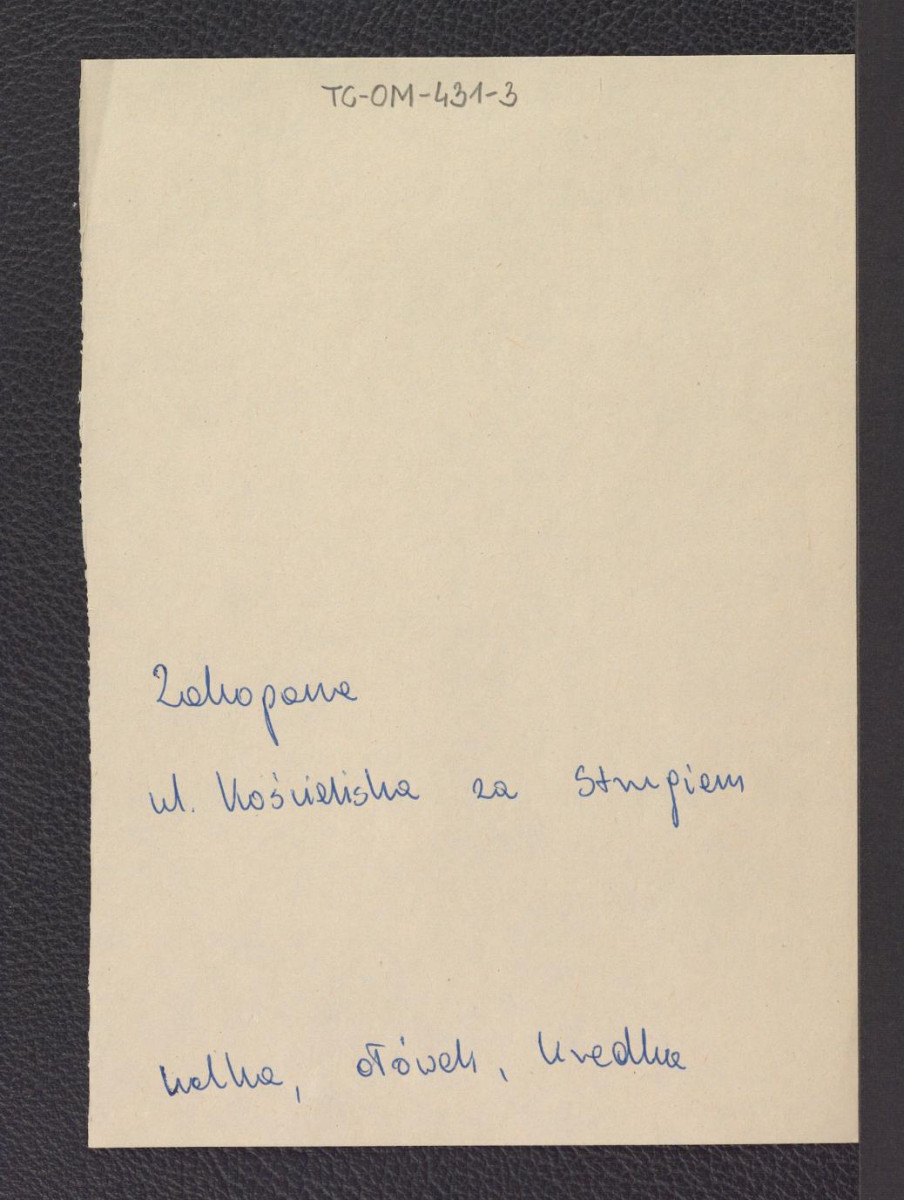 TG-OM-431-3
Zakopane
ul. Kościeliska za Strugiem
kalka, ołówek, kredka